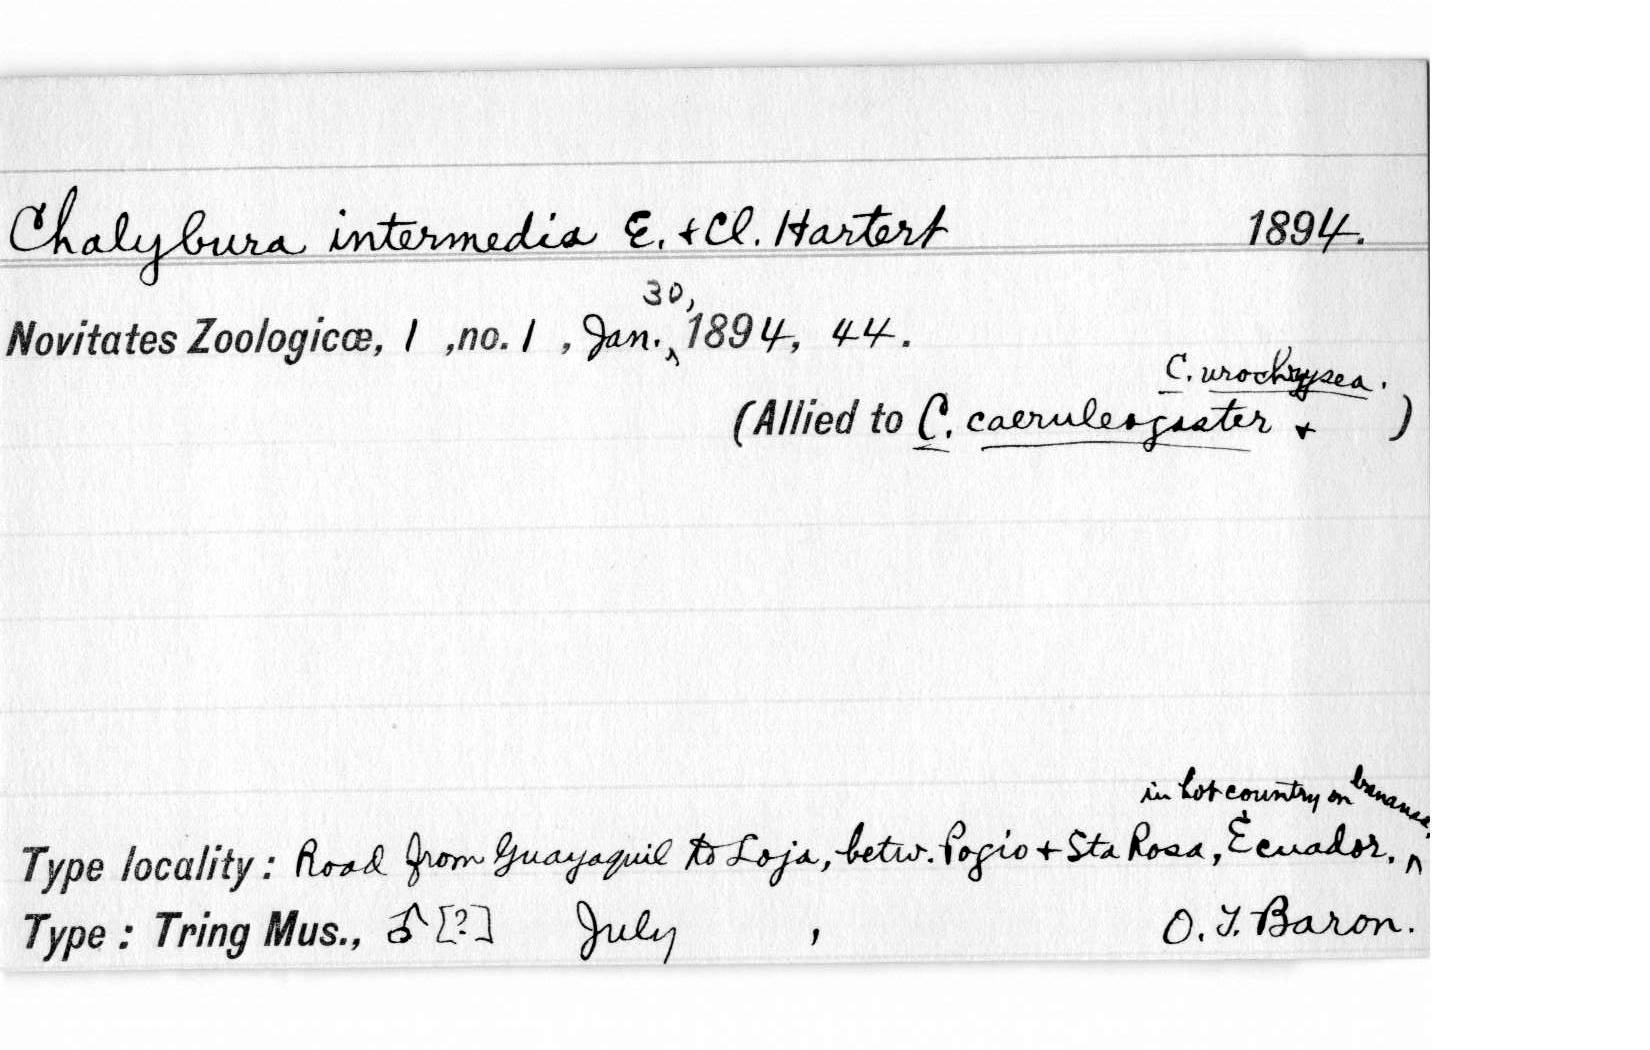 Chalybura intermedia E. + Cl. Hartert 1894.
30,
Novitates Zoologicæ, 1 ,no. 1 , Jan. ‸ 1894, 44.
C. urochrysea.
(Allied to C. caeruleogaster + )
in hot country on bananas,
Type locality: Road from Guayaquil to Loja, betw. Pogio + Sta Rosa, Ecuador. ‸
Type: Tring Mus., ♂ [?] July , O. T. Baron.